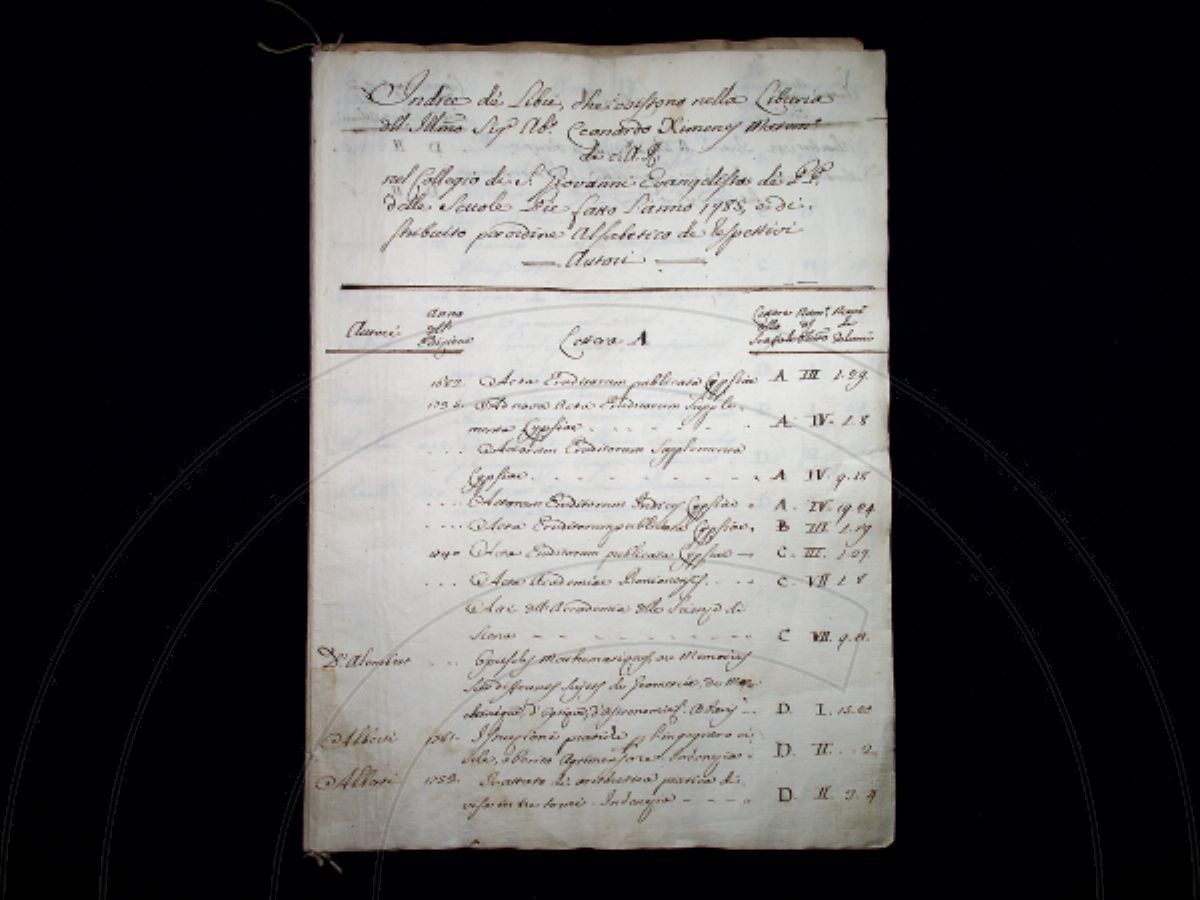 Indice de Libri, che esistono nella Libreria
dell' Illmo Sig. Ab. Leonardo Ximenes Matem.
di S.A.R.
nel Collegio di S. Giovanni Evangelista de PP.
delle Scuole Pie fatto l'anno 1785, e di-
stribuito per ordine Alfabetico de respettivi
Autori
Autori Anno dell' Edizione Lettera A Lettera dello Scaffale Num. del Volumi
1682. Acta Eruditorum publicata Lypsiae A III 1.29.
Ad nova Acta Eruditorum Supple-
menta Lypsiae A IV. 1.8
Actorum Eruditorum Supplementa
Lypsiae A IV. 9.18
Actorum Eruditorum Indices Lypsiae A. IV. 19.24
Acta Eruditorum publicata Lypsiae B III 1.19
Acta Eruditorum publicata Lypsiae C. III. 1.29.
Acta Academiae C VII 1.8
Atti dell' Accademia delle Scienze di
Siena C VII. 9.11.
D'Alembert Opuscles ou Memoires
Sur differents Sujets de Geometrie, de Me-
chanique, d'Optique, d'Astronomie. A Paris D. I.
Alberti Istruzioni pratiche per l'ingegnero ci-
vile, o perito Agrimensore. Venezia D. II. 2.
Alberti Trattato di aritmetica pratica di-
viso in tre tomi. Venezia D. II. 3.4